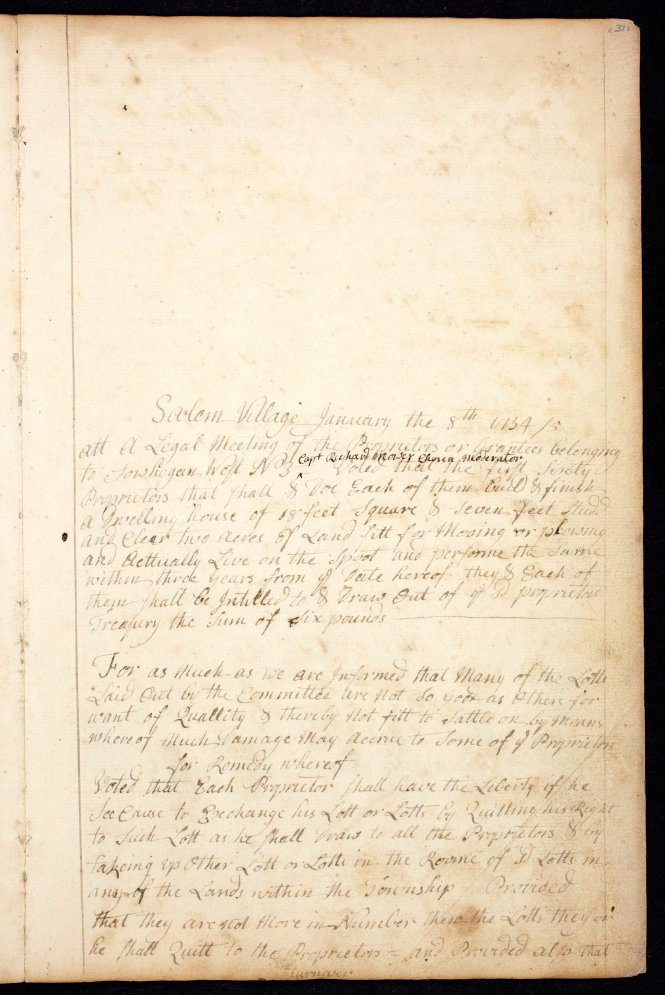 (31)
Salem Village January the 8th 1734/5
att A Legal Meeting of the Proprietors or Grantees belonging
to Sowhegan West No 3 Capt Richard Mower Chosen Moderator Voted that the first Sixty
Proprietors that shall & Doe Each of them build & finish
a Dwelling house of 18 feet Square & Seven feet Studd
and Clear two Acres of Land fitt for Mowing or plowing
and Acttually Live on the Spoot and performe the Same
within three years from ye Date hereof they & Each of
them shall be Intitled to & Draw Out of ye sd proprietors
Treasury the Sum of Six pounds
For as Much as we are Informed that Many of the Lotts
Laid Out by the Committee are Not So good as Others for
want of Quallity & thereby Not fitt to Sattle on by Means
whereof Much Damage May Accrue to Some of ye Proprietors
for Remedy whereof
Voted that Each Proprietor shall have the Liberty if he
See Cause to Exchange his Lott or Lotts by Quitting his Right
to Such Lott as he shall Draw to all the Proprietors & by
takeing up Other Lott or Lotts in the Roome of sd Lotts in
any of the Lands within the Township Provided
that they are not More in Number then the Lotts they or
he shall Quitt to the Proprietors = and Provided also that